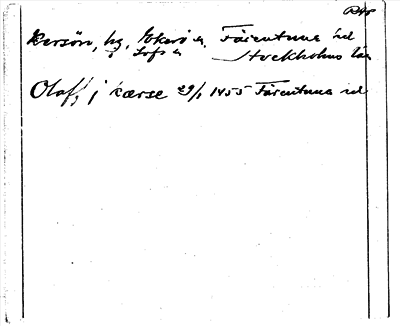 Kersön, hg, Ekerö sn, Färentuna hd
i Lofö sn Stockholms län
Olaf, j kærse 29/1 1455 Färentuna hd